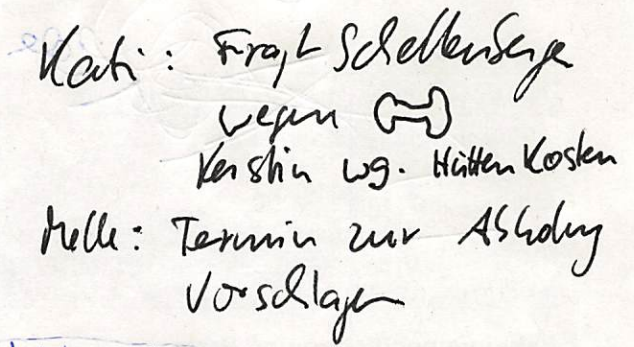 Kati: Fragt Schellenberger
wegen
Kerstin wg. Hütten Kosten
Melle: Termin zur Abholung
vorschlagen